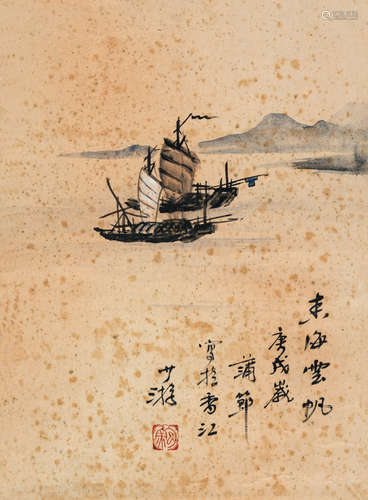 東海雲帆
庚戌歲
蒲節
寫於香江
少游